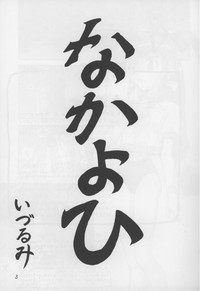 なかよひ
いづるみ
2